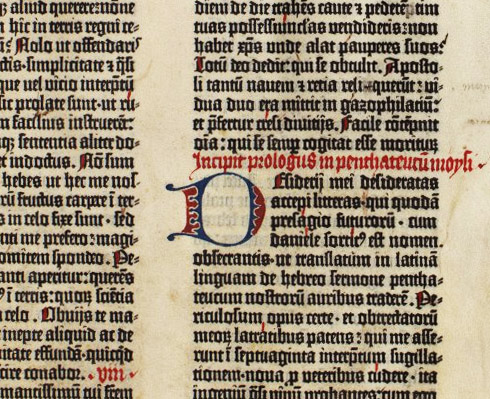 q; aliud querere: nōne
n hic in terris regni ce-
Nolo ut offendaris
ctis. simplicitate et q̄si
que uel vicio interpretū
sic prolate sunt. ut ru-
m facilius instruerēt:
q; sententia aliter do-
et indoctus. Nō sum
hebes ut hec me nos-
ū fructus carpere ī ter-
s in celo fixe sunt. sed
nti me prefero: magi-
omitem spondeo. Pe-
anti aperitur: querēs
ī terris: quoꝝ sciētia
celo. Obuijs te ma-
inepte aliquid ac de
uitate effundā. quicqd
cire conabor. viii
mantissimū tui frem
diem de die trahēs caute et pedetētim
tuas possessiūculas vendideris: non
habet xp̄us unde alat pauperes suos:
Totū deo dedit: qui se obtulit. Aposto-
li tantū nauem et retia reliquerūt: vi-
dua duo era mittit in gazophilaciū:
et p̄fertur cresi diuitijs. Facile cōtēpnit
oīa: qui se semp cogitat esse moriturū
Incipit prologus in penthateucū moysi
Desiderij mei desideratas
accepi litteras. qui quodā
presagio futuroꝝ. cum
daniele sortit9 est nomen.
obsecrantis. ut translatum in latinā
linguam de hebreo sermone pentha-
teucum nostroꝝ auribus traderē. Pe-
riculosum opus certe. et obtrectatoꝝ
meoꝝ latratibus patens: qui me asse-
runt ī septuaginta interpretum sugilla-
tionem. noua p̱ veteribus cudere. ita
ingeniū q̄si vinū probantes: cum ego